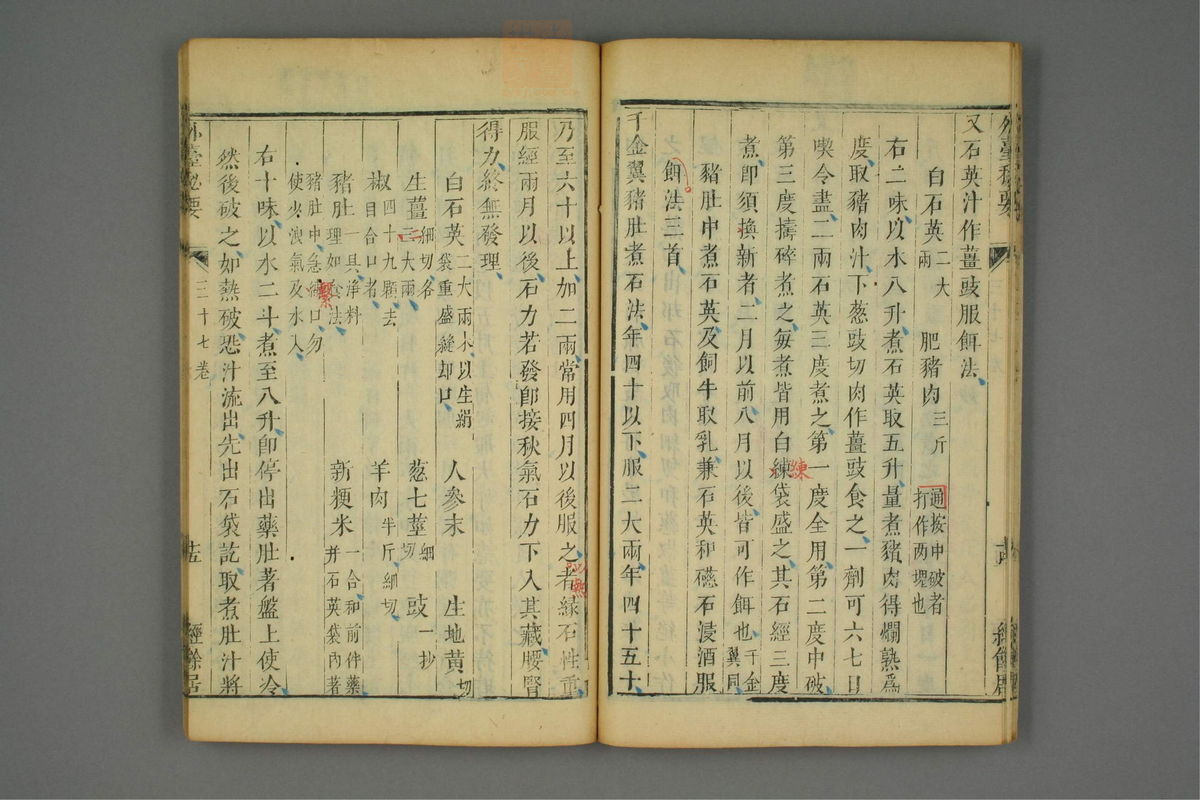 外臺秘要
經餘居
又石英汁作薑豉服餌法
白石英二大兩 肥豬肉三斤 通按中破者打作兩㙛也
右二味以水八升煮石英取五升量煮豬肉得爛熟爲
度取豬肉汁下葱豉切肉作薑豉食之一劑可六七日
喫令盡二兩石英三度煮之第一度全用第二度中破
第三度擣碎煮之每煮皆用白練袋盛之其石經三度
練
煮卽須換新者二月以前八月以後皆可作餌也千金翼同
豬肚中煮石英及飼牛取乳兼石英和礠石浸酒服
餌法三首
千金翼豬肚煮石法年四十以下服二大兩年四十五十
乃至六十以上加二兩常用四月以後服之者緣石性重
服經兩月以後石力若發卽接秋氣石力下入其藏腰腎
得力終無發理
白石英二大兩小以生絹袋重盛縫却口 人參末 生地黃切
生薑細切各三大兩 葱七莖細切 豉一抄
椒四十九顆去目合口者 羊肉半斤細切
豬肚一具淨料豬肚理如食法 新粳米一合和前件藥并石英袋內著
豬肚中急縛口勿使少洩氣及水入
繫
右十味以水二斗煮至八升卽停出藥肚著盤上使冷
然後破之如熱破恐汁流出先出石袋訖取煮肚汁將
外臺祕要 三十七卷 十五 經餘居